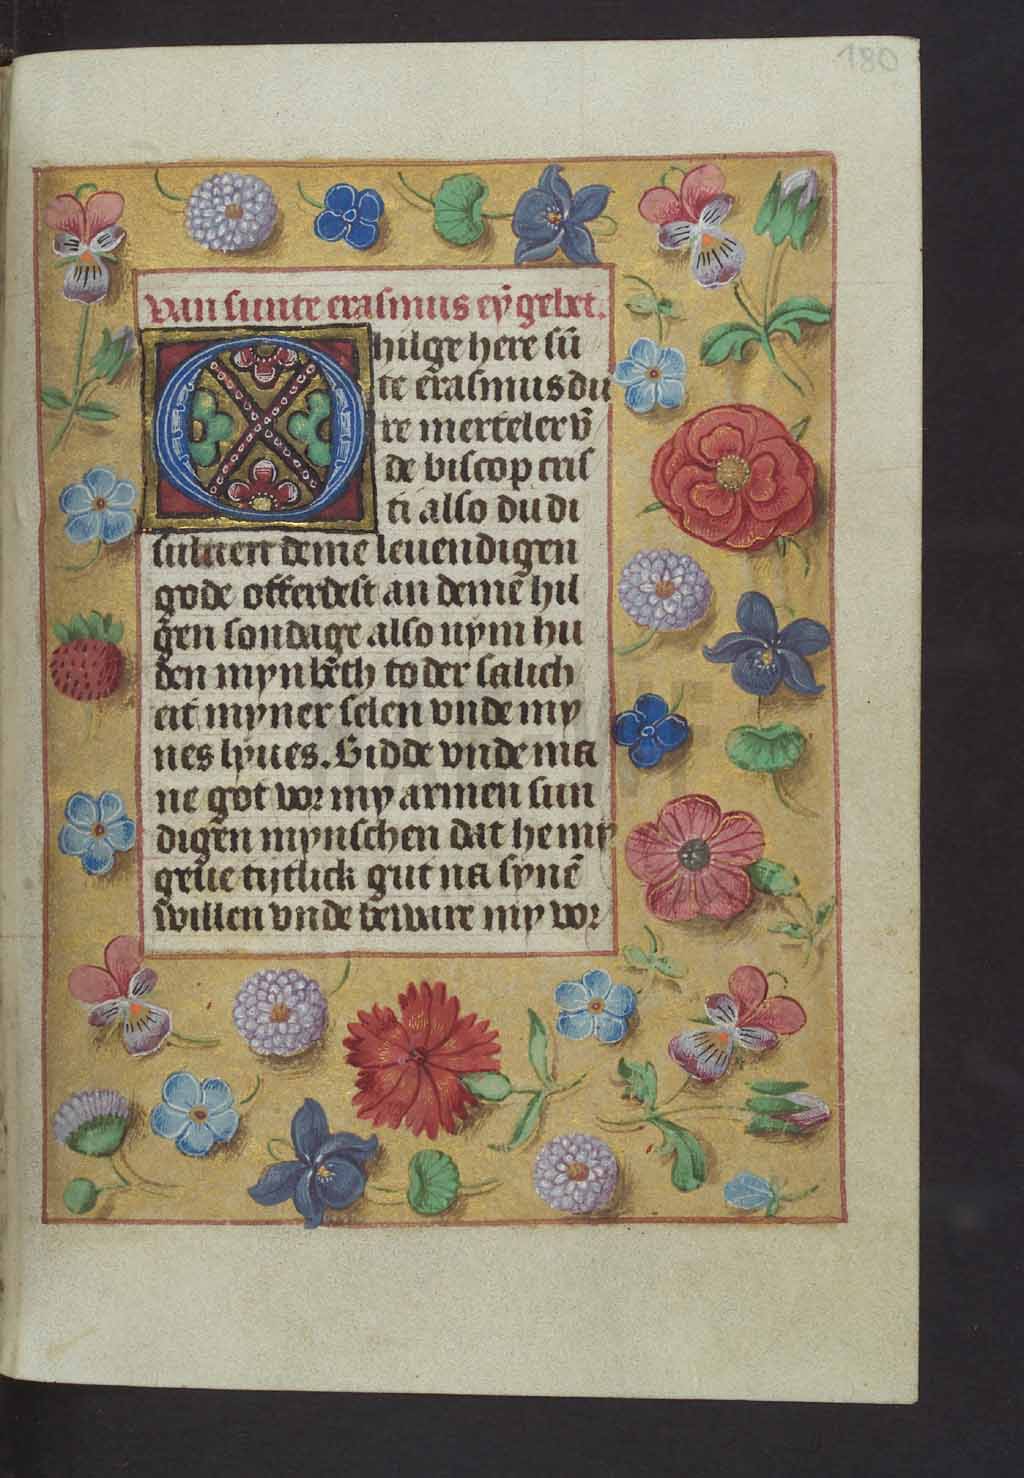 180
van sunte erasmus eȳ gebet.
O hilge here sū
te erasmus du
re merteler vn̄
de biscop cris
ti also du di
suluen deme leuendigen
gode offerdest an demē hil
gen sondage also nym hu
den myn beth to der salich
eit myner selen vnde my
nes lyues. Bidde vnde ma
ne got vor my armen sun
digen mynschen dat he my
geue tytlick gut na synē
willen vnde beware my vor